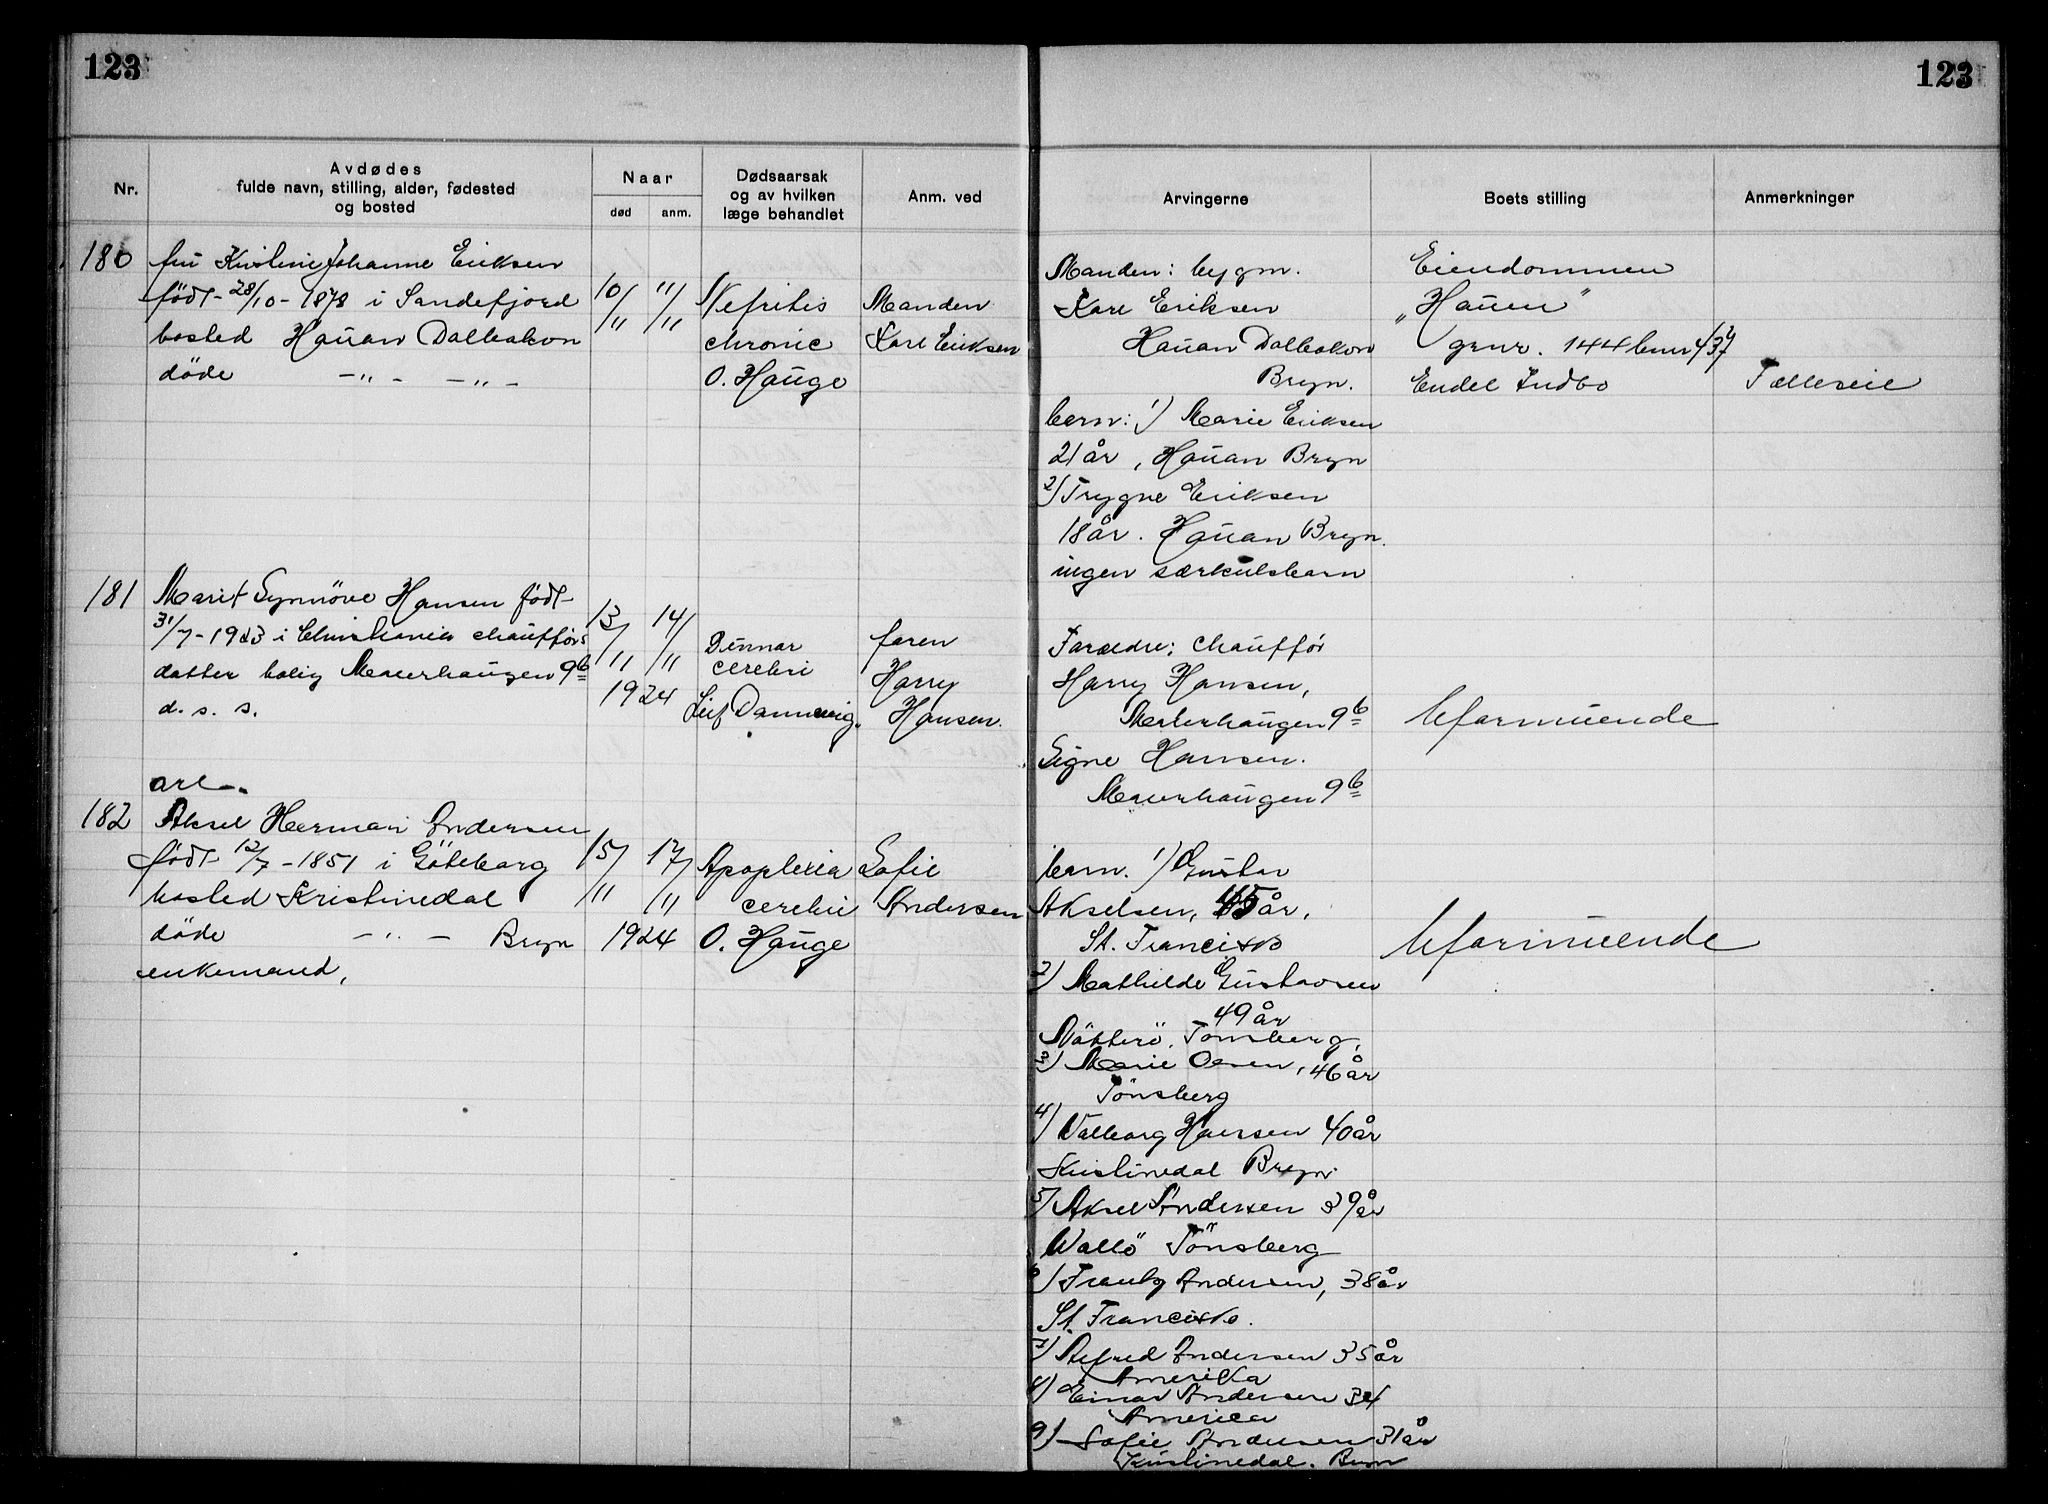 123
123
Nr.
Avdødes
fulde navn, stilling, alder, fødested
og bosted
Naar
død
anm.
Dødsaarsak
og av hvilken
læge behandlet
Anm. ved
Arvingerne
Boets stilling
Anmerkninger
180
fru Kristine Johanne Eriksen
født 28/10-1878 i Sandefjord
bosted Hauan Dalbakon
döde -"- -"-
10/11
11/11
Nefritis
chronic
O. Hauge
Manden
Karl Eriksen
Manden: bygm.
Karl Eriksen
Hauan Dalbakon
Bryn.
barn: 1) Marie Eriksen
21 år, Hauan Bryn
2) Trygve Eriksen
18 år. Hauan Bryn.
ingen særkulsbarn
Eiendommen
„Hauen"
gnr. 144 bnr
Endel Indbo
181
Marit Synnöve Hansen födt
31/7-1923 i Christiania chaufførs
datter bolig 9b
d. s. s.
13/11
14/11
1924
cerebri
Leif Dannevig.
faren
Harry
Hansen.
Foreldre: Chauffør
Harry Hansen,
9b
Signe Hansen.
9b
Uformuende
arb.
182
Aksel Herman Andersen
født 12/7-1851 i Göteborg
bosted Kristinedal
döde -"- Bryn
enkemand,
15/11
17/11
1924
Apoplexia
cerebri
O. Hauge
Sofie
Andersen
barn. 1) Gustav
Akselsen, år,
St. Francisko
Uformuende
2) Mathilde Gustavsen
49 år
Nötterö. Tönsberg,
3) Marie Olsen, 46 år
Tönsberg
4) Valborg Hansen 40 år
Kristinedal Bryn.
5) Aksel Andersen 39 år
Vallö Tönsberg
6) Andersen, 38 år
St. Francisko.
7) Alfred Andersen 35 år
Amerika
8) Einar Andersen 34
America
9) Sofie Andersen 31 år
Kristinedal. Bryn